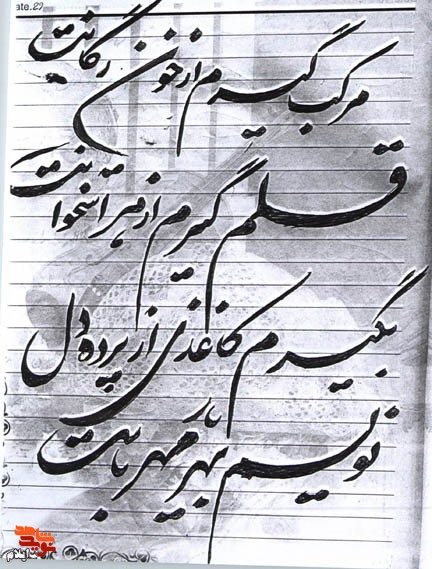 ate.29
مرکب گیرم از خون رگانت
قلم گیرم از هر استخوانت
بگیرم کاغذی از پرده دل
نویسم بهر یار مهربانت